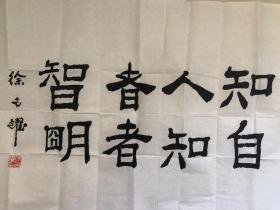 知人者智
自知者明
徐